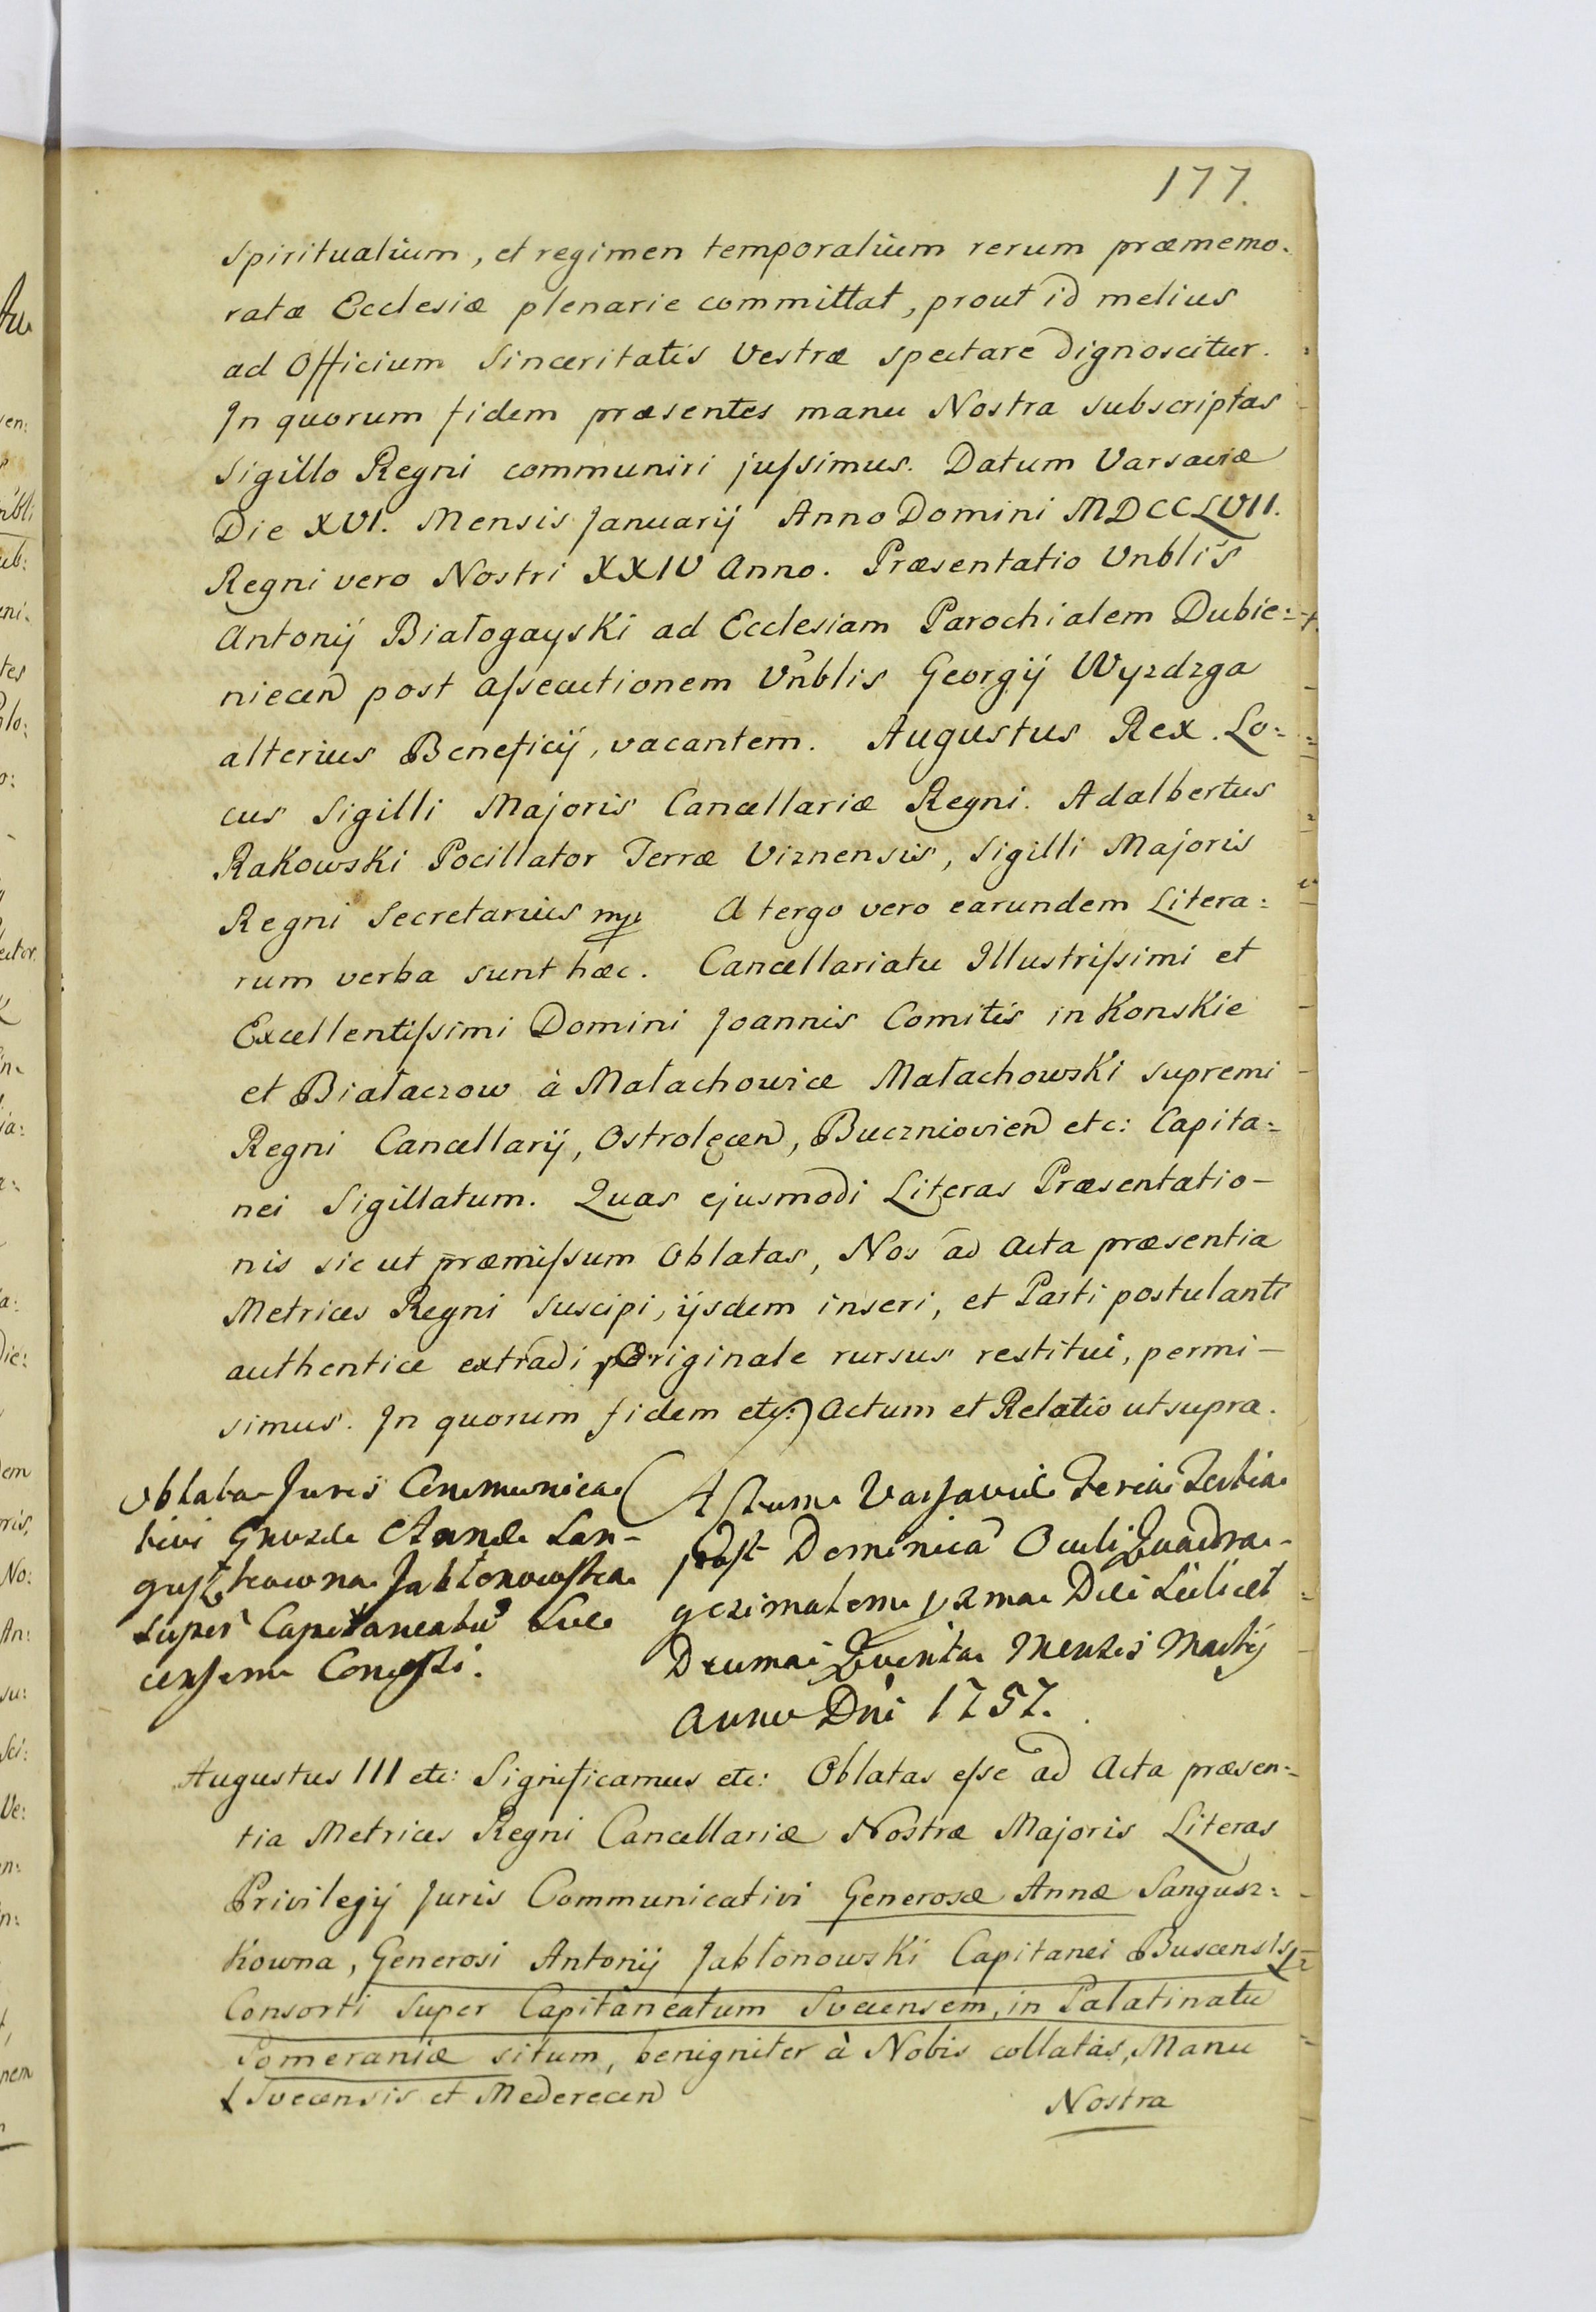 177.
spiritualium, et regimen temporalium rerum præmemo.
ratæ Ecclesiæ plenarie committat, prout id melius
ad Officium Sinceritatis Vestræ spectare dignoscitur.
In quorum fidem præsentes manu Nostra subscriptas
Sigillo Regni communiri juſsimus. Datum Varsaviæ
Die XVI. Mensis Januarij Anno Domini MDCCLVII.
Regni vero Nostri XXIV Anno. Præsentatio Vnblis
Antonij Białogayski ad Ecclesiam Parochialem Dubie=
niecen post aſsecutionem Vnblis Georgij Wyzdzga
alterius Beneficij, vacantem. Augustus Rex. Lo=
cus Sigilli Majoris Cancellariæ Regni. Adalbertus
Rakowski Pocillator Terræ Viznensis, Sigilli Majoris
Regni Secretarius mp A tergo vero earundem Litera=
rum verba sunt hæc. Cancellariatu Illustriſsimi et
Excellentiſsimi Domini Joannis Comitis in Konskie
et Białaczow à Małachowice Małachowski supremi
Regni Cancellarij, Ostrolęcen, Buczniovien etc: Capita=
nei Sigillatum. Quas ejusmodi Literas Præsentatio-
nis sic ut præmiſsum Oblatas, Nos ad Acta præsentia
Metrices Regni suscipi, ijsdem inseri, et Parti postulanti
authentice extradi, Originale rursus restitui, permi-
simus. In quorum fidem etc: Actum et Relatio ut supra.
Oblata Juris Communica
tivi Gnozæ Annæ San-
guszkowna Jabłonowska
super Capitaneatu Sve
censem Concessi.
Actum Varsaviæ Feria Tertia
post Dominica Oculi Quadra-
gezimalem p2ma Die Scilicet
Decima Quinta Mensis Martij
Anno Dni 1757.
Augustus III etc: Significamus etc: Oblatas eſse ad Acta præsen=
tia Metrices Regni Cancellariæ Nostræ Majoris Literas
Privilegij Juris Communicativi Generosæ Annæ Sangusz=
kowna, Generosi Antonij Jabłonowski Capitanei Buscensis
Consorti super Capitaneatum Svecensem, in Palatinatu
Pomeraniæ situm, benigniter à Nobis collatas, Manu
Svecensis et Mederecen
Nostra